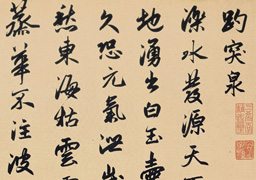 趵突泉
濼水發源天
地湧出白玉壺
久恐元氣洩歲
愁東海枯雲
蒸華不注波